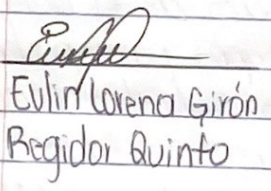 Evlin Lorena Girón
Regidor Quinto